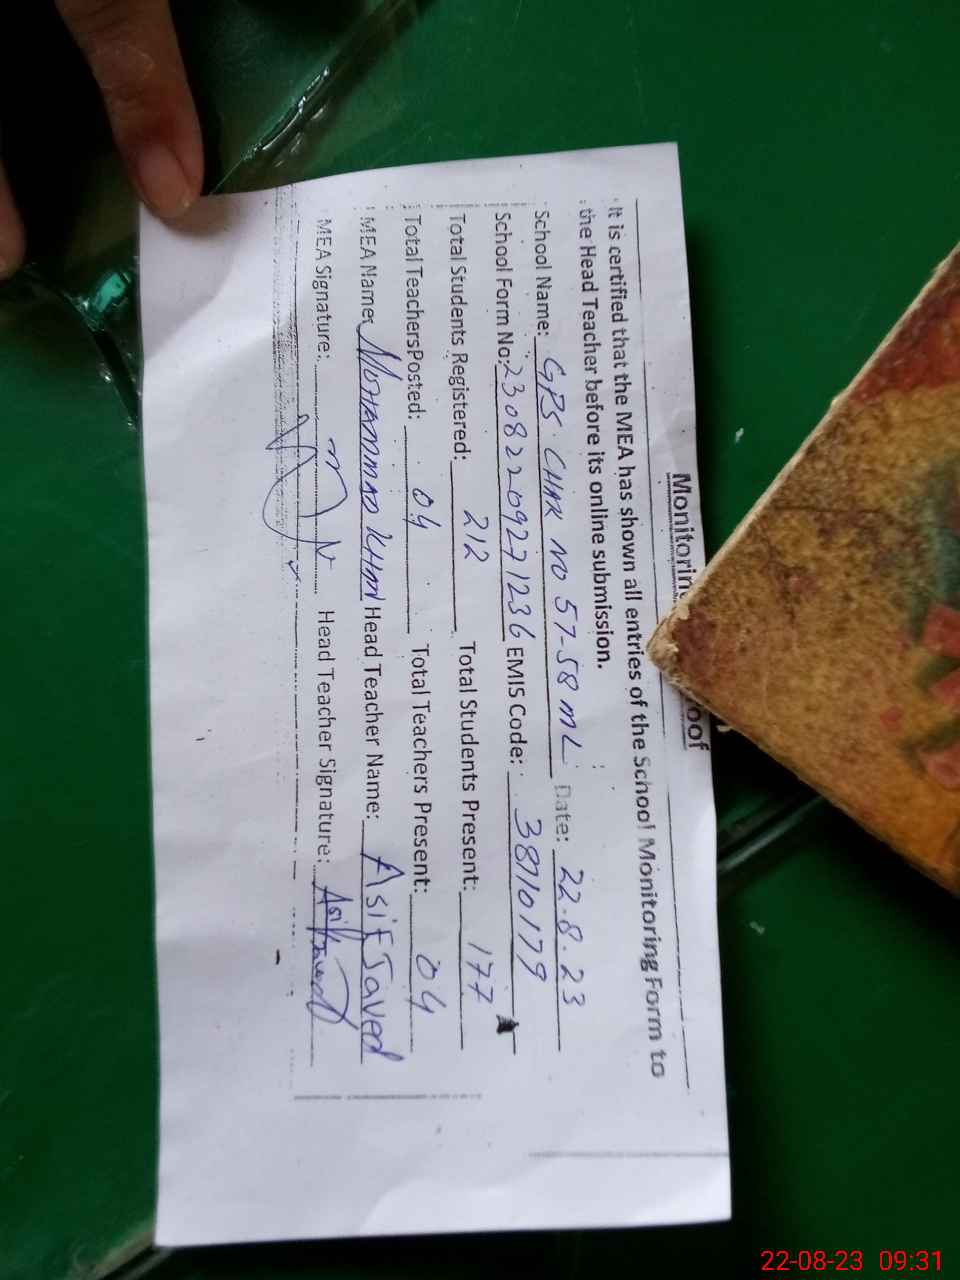 Monitoring
oof
It is certified that the MEA has shown all entries of the School Monitoring Form to
the Head Teacher before its online submission.
School Name: GPS CHAK NO 57-58 ML Date: 22.8.23
School Form No: 23082209271236 EMIS Code: 38710179
Total Students Registered: 212 Total Students Present: 177
Total Teachers Posted: 04 Total Teachers Present: 04
MEA Name: MUHAMMAD KHAN Head Teacher Name: Asif Javed
MEA Signature: Head Teacher Signature: Asif Javed
22-08-23 09:31